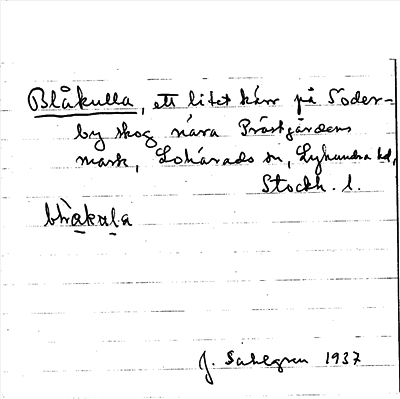 Blåkulla, ett litet kärr på Söder=
by skog nära Prästgårdens
mark, Lohärads sn, Lyhundra hd,
Stockh. l.
blåkula
J. Sahlgren 1937